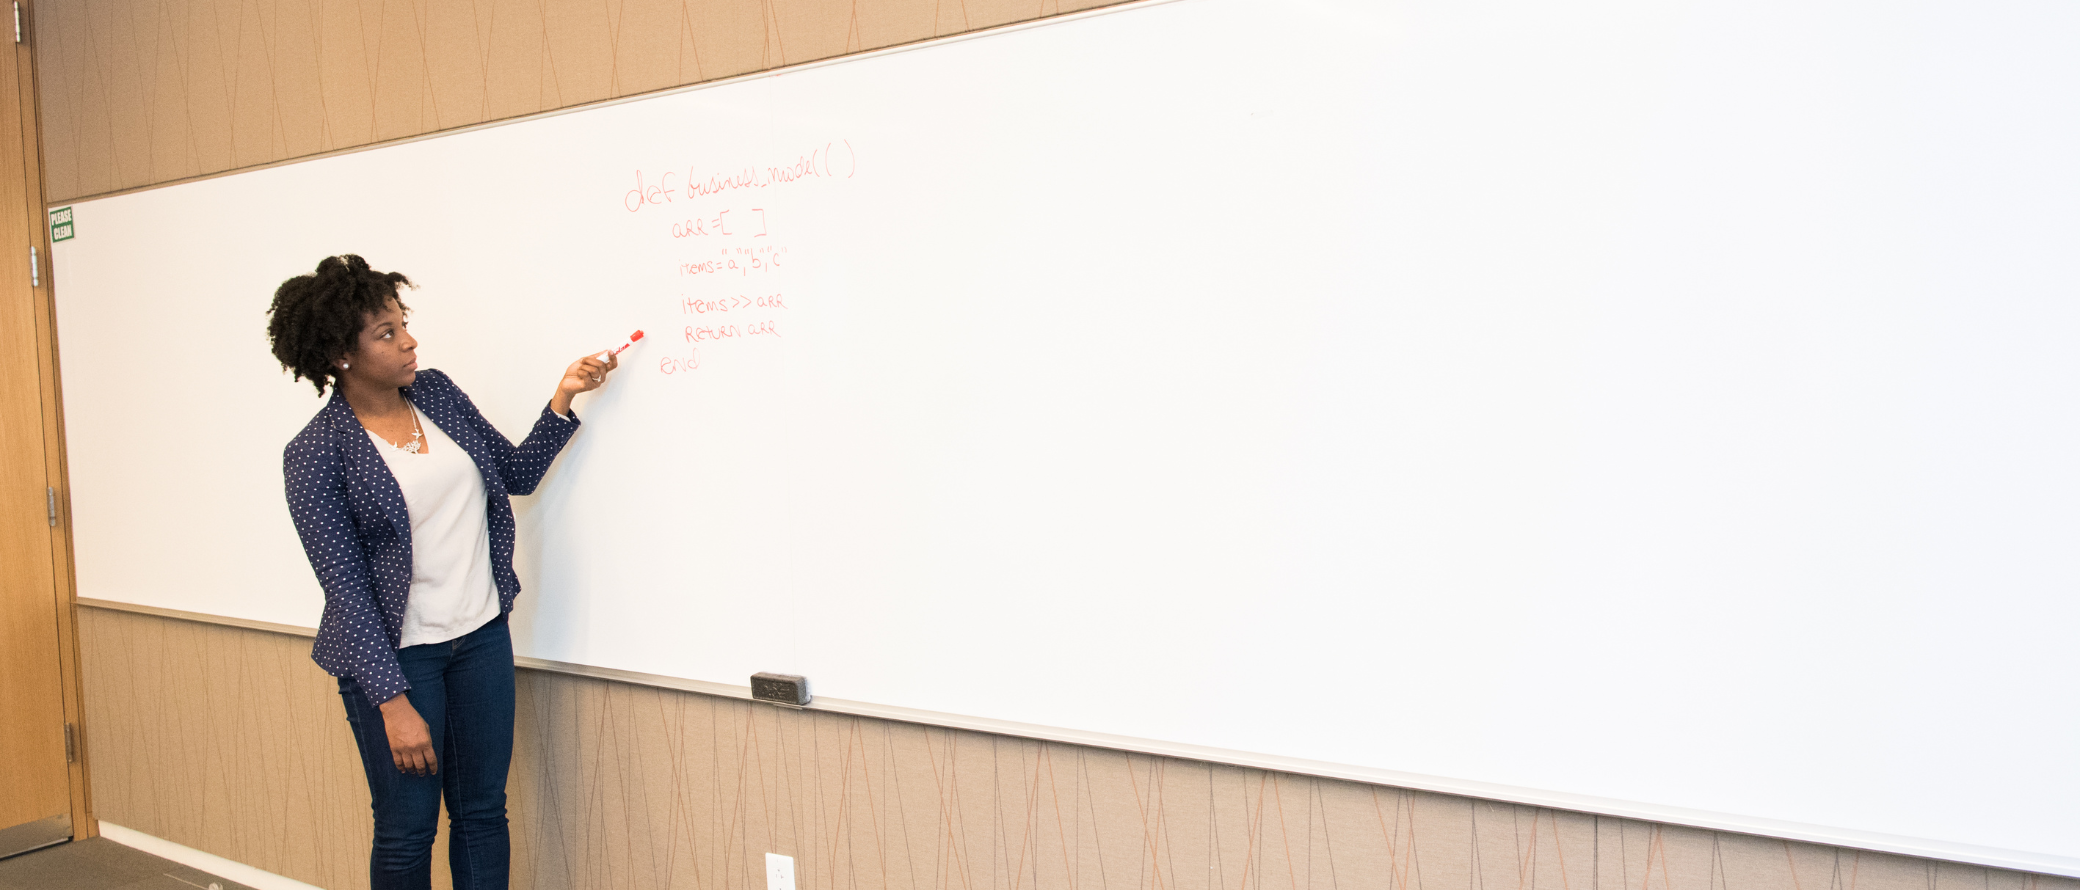 PLEASE
CLEAN
def business_model( )
arr = [ ]
items = "a", "b", "c"
items >> arr
Return arr
end